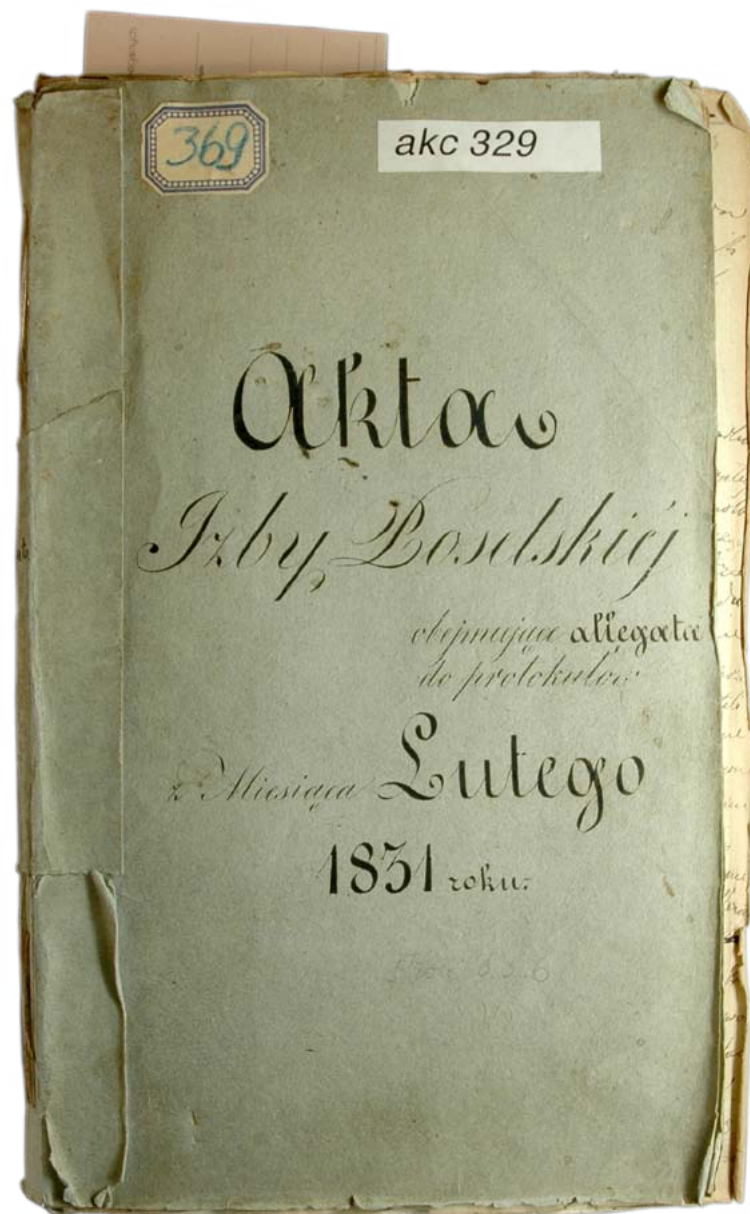 369
akc 329
Akta
Izby Poselskiéj
obejmujące allegata
do protokułów
z Miesiąca Lutego
1831 roku.